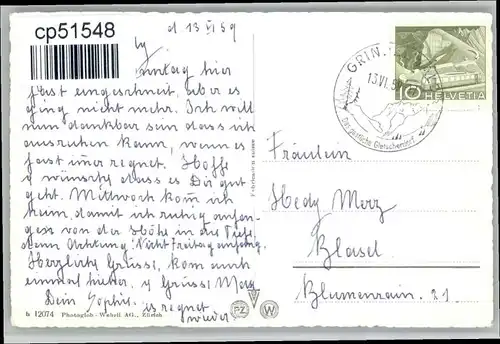 cp51548
d 13 VI 59
Sonntag hier
fast eingeschneit, aber es
ging nicht mehr. Ich will
nun dankbar sein dass ich
ausruhen kann, wenn es
fast immer regnet. Hoffe
u wünsche dass es Dir gut
geht. Mittwoch kom̄ ich
heim, damit ich ruhig
von der Höhe in die Tiefe,
denn Achtung! Nicht Freitag anfang.
Herzlichst Grüsse, kom auch
einmal hicher. u Grüssi May
Dein Sophie. es regnet
wieder
h 12074 Photoglob-Wehrli AG., Zürich
PZ W
GRIN
13.VI.59
Das gastliche Gletscherdorf
10 HELVETIA
Fräulein
Hedy Merz
Basel
Blumenrain 21